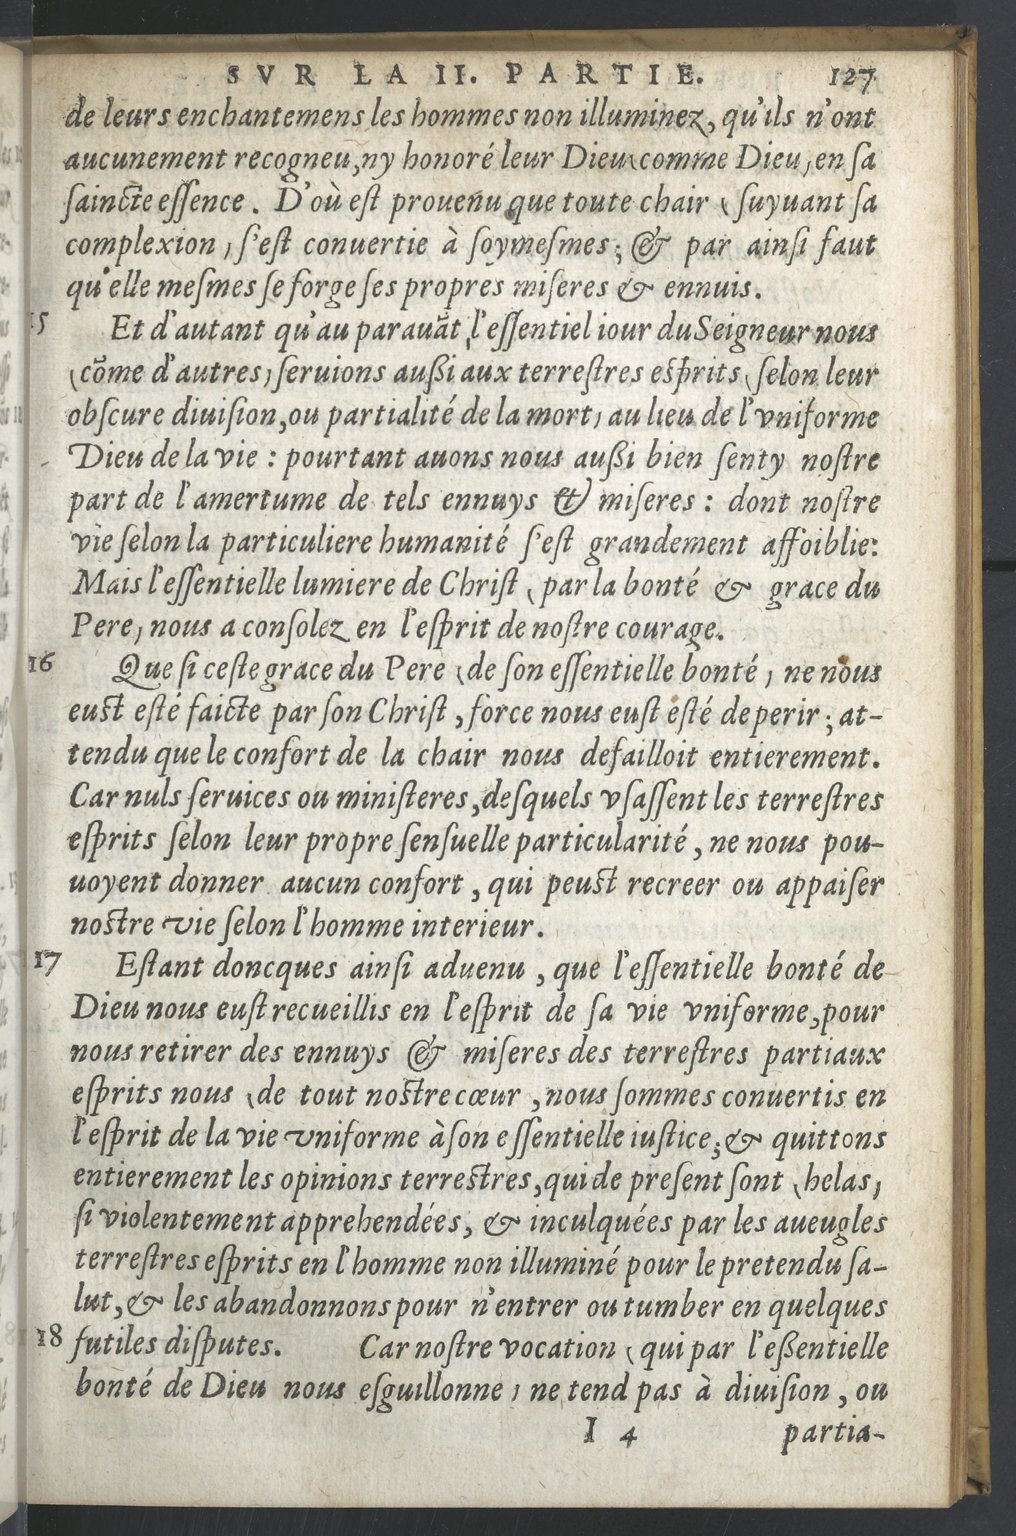 SVR LA II. PARTIE. 127
de leurs enchantemens les hommes non illuminez, qu'ils n'ont
aucunement recogneu, ny honoré leur Dieu (comme Dieu) en ſa
ſaincte eſſence. D'où eſt prouenu que toute chair (ſuyuant ſa
complexion) s'eſt conuertie à ſoymeſmes; & par ainſi faut
qu'elle meſmes ſe forge ſes propres miſeres & ennuis.
15 Et d'autant qu'au parauãt l'eſſentiel iour du Seigneur nous
(cõme d'autres) ſeruions außi aux terreſtres eſprits (ſelon leur
obſcure diuiſion, ou partialité de la mort) au lieu de l'vniforme
Dieu de la vie : pourtant auons nous außi bien ſenty noſtre
part de l'amertume de tels ennuys & miſeres : dont noſtre
vie ſelon la particuliere humanité s'eſt grandement affoiblie:
Mais l'eſſentielle lumiere de Chriſt (par la bonté & grace du
Pere) nous a conſolez en l'eſprit de noſtre courage.
16 Que ſi ceſte grace du Pere (de ſon eſſentielle bonté) ne nous
euſt eſté faicte par ſon Chriſt, force nous euſt eſté de perir; at-
tendu que le confort de la chair nous defailloit entierement.
Car nuls ſeruices ou miniſteres, deſquels vſaſſent les terreſtres
eſprits ſelon leur propre ſenſuelle particularité, ne nous pou-
uoyent donner aucun confort, qui peuſt recreer ou appaiſer
noſtre vie ſelon l'homme interieur.
17 Eſtant doncques ainſi aduenu, que l'eſſentielle bonté de
Dieu nous euſt recueillis en l'eſprit de ſa vie vniforme, pour
nous retirer des ennuys & miſeres des terreſtres partiaux
eſprits nous (de tout noſtre cœur, nous ſommes conuertis en
l'eſprit de la vie vniforme à ſon eſſentielle iuſtice; & quittons
entierement les opinions terreſtres, qui de preſent ſont (helas)
ſi violentement apprehendées, & inculquées par les aueugles
terreſtres eſprits en l'homme non illuminé pour le pretendu ſa-
lut, & les abandonnons pour n'entrer ou tumber en quelques
18 futiles diſputes. Car noſtre vocation (qui par l'eßentielle
bonté de Dieu nous eſguillonne) ne tend pas à diuiſion, ou
I 4 partia-